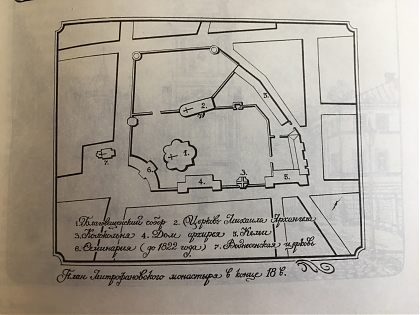 1. Благовещенский собор 2. Церковь Михаила Архангела
3. Колокольня 4. Дом архирея 5. Кельи
6. Семинария (до 1822 года) 7. Введенская церковь
План Митрофановского монастыря в конце 18 в.
2.
5
1.
3.
6.
7.
4.
5.